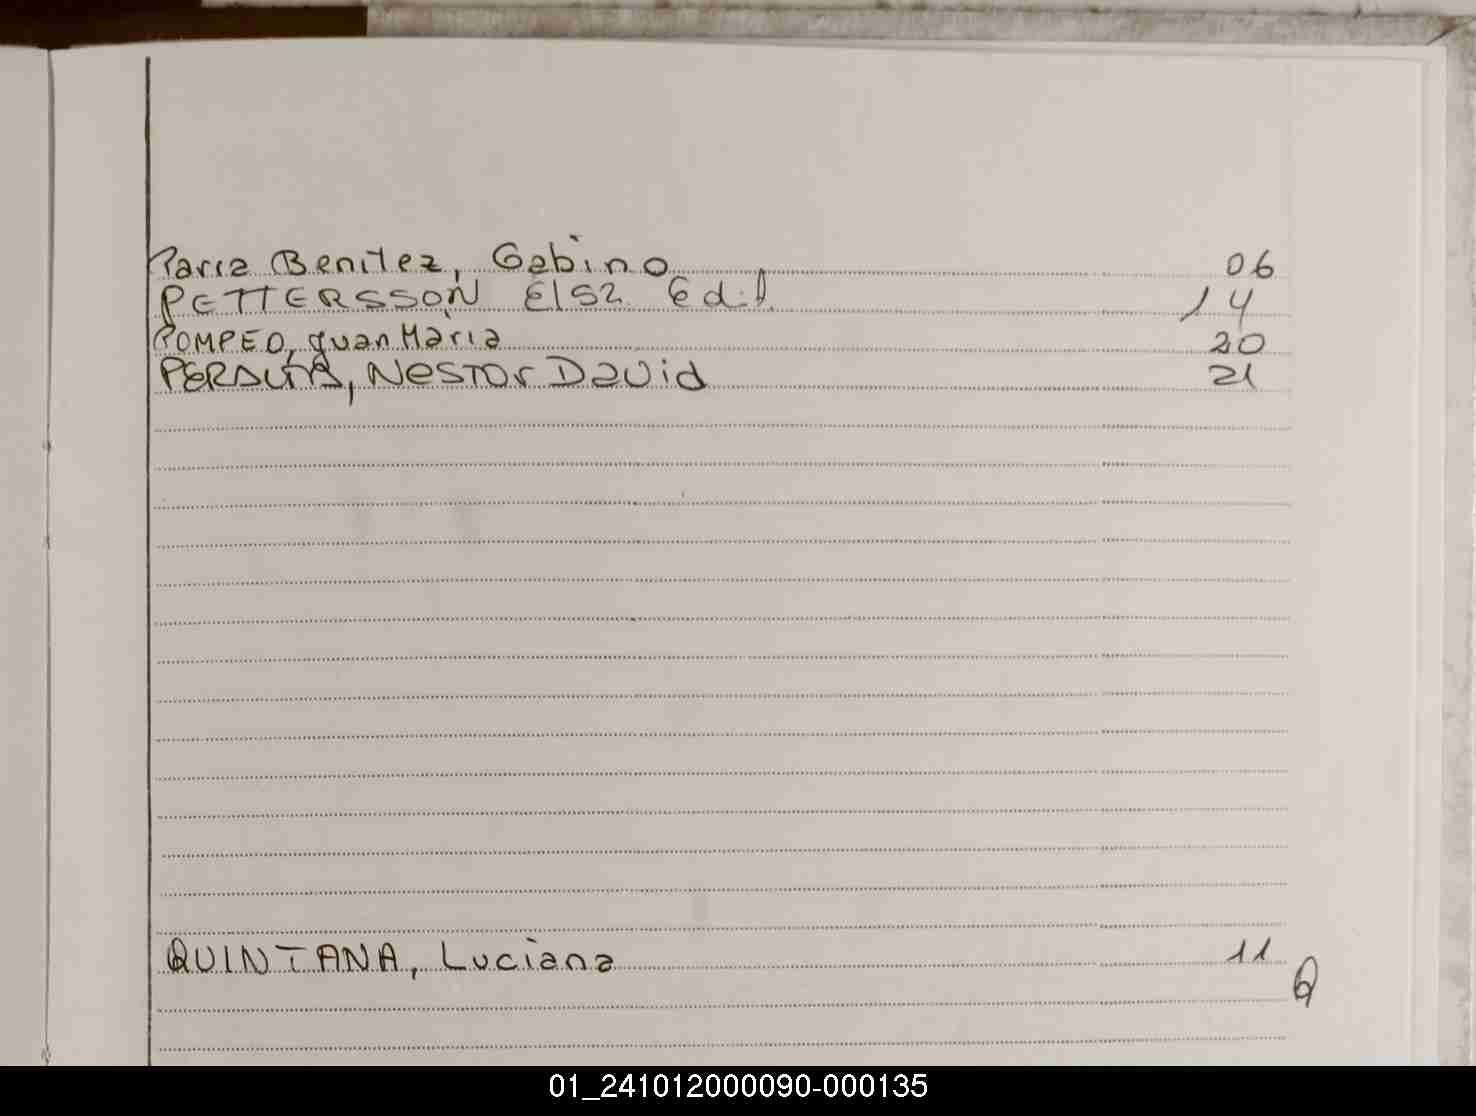 Parra Benitez, Gabino 06
PETTERSSON Elsa Edit 14
POMPEO, Juan Maria 20
PERALTA, NESTOR David 21
QUINTANA, Luciana 11
Q
01_241012000090-000135